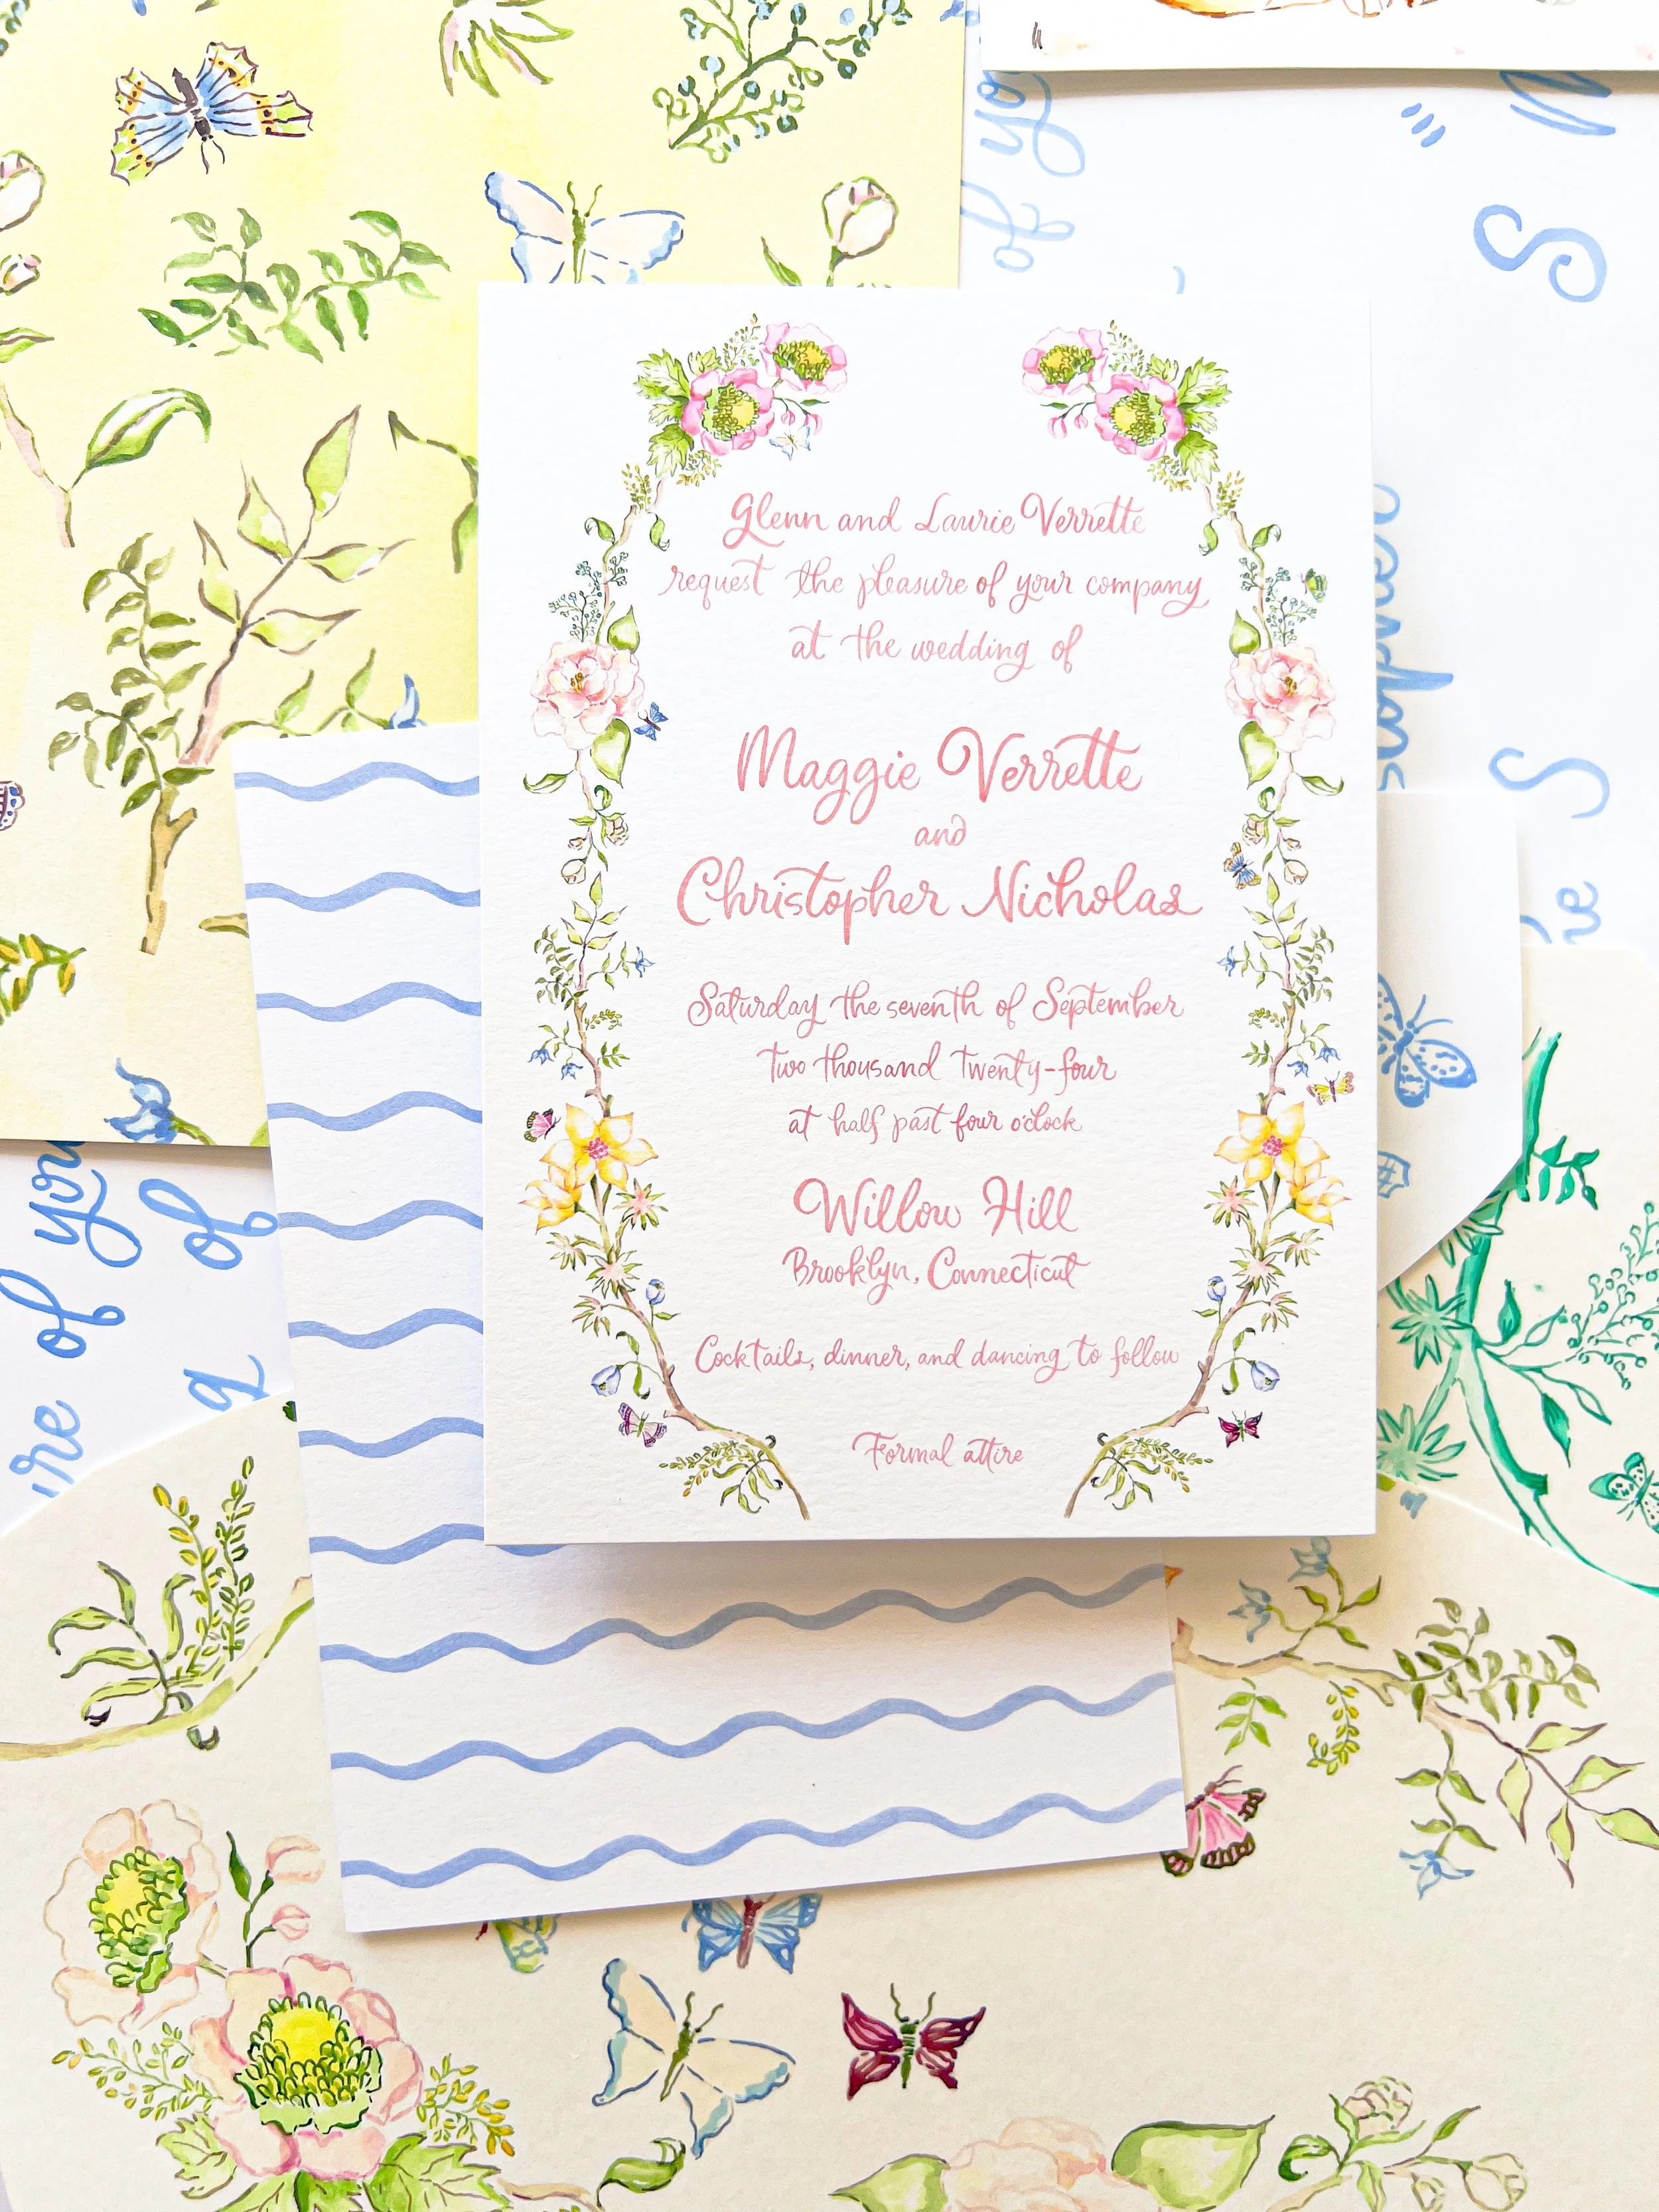 Glenn and Laurie Verrette
request the pleasure of your company
at the wedding of
Maggie Verrette
and
Christopher Nicholas
Saturday the seventh of September
two thousand twenty-four
at half past four o'clock
Willow Hill
Brooklyn, Connecticut
Cocktails, dinner, and dancing to follow
Formal attire
of you
of
of